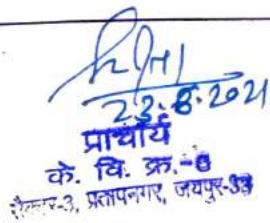 23.8.2021
प्राचार्य
के. वि. क्र.-6
सैक्टर-3, प्रतापनगर, जयपुर-33